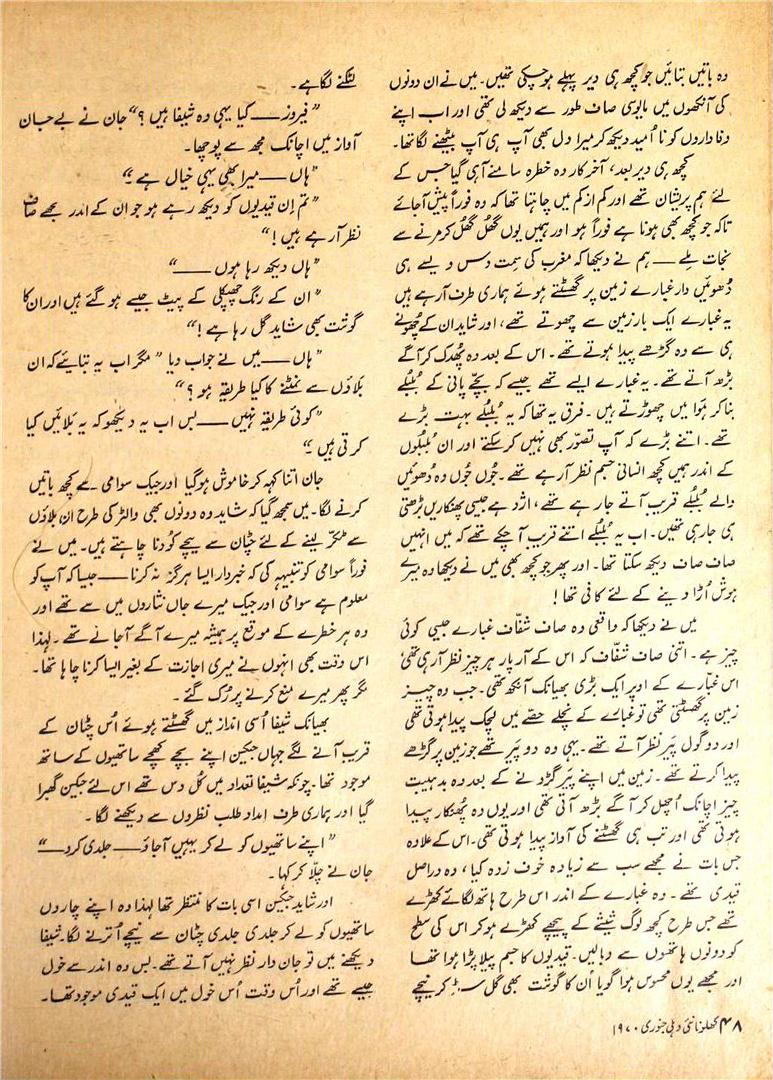 وہ باتیں بتائیں جو کچھ ہی دیر پہلے ہو چکی تھیں۔ میں نے ان دونوں
کی آنکھوں میں مایوسی صاف طور سے دیکھ لی تھی اور اب اپنے
وفاداروں کو نا اُمید دیکھ کر میرا دل بھی آپ ہی آپ بیٹھنے لگا تھا۔
کچھ ہی دیر بعد، آخر کار وہ خطرہ سامنے آہی گیا جس کے
لئے ہم پریشان تھے اور کم از کم میں چاہتا تھا کہ وہ فوراً پیش آجائے
تاکہ جو کچھ بھی ہونا ہے فوراً ہو اور ہمیں یوں گھُل گھُل کر مرنے سے
نجات ملے —— ہم نے دیکھا کہ مغرب کی سمت دس ویسے ہی
دُھوئیں دار غبارے زمین پر گھسٹتے ہوئے ہماری طرف آرہے ہیں
یہ غبارے ایک بار زمین سے چھوتے تھے، اور شاید ان کے چھونے
ہی سے وہ گڑھے پیدا ہوتے تھے۔ اس کے بعد وہ پھدک کر آگے
بڑھ آتے تھے۔ یہ غبارے ایسے تھے جیسے کہ بچے پانی کے بُلبُلے
بنا کر ہوا میں چھوڑتے ہیں۔ فرق یہ تھا کہ یہ بُلبُلے بہت بڑے
تھے۔ اتنے بڑے کہ آپ تصوّر بھی نہیں کر سکتے اور ان بُلبُلوں
کے اندر ہمیں کچھ انسانی جسم نظر آرہے تھے۔ جُوں جُوں وہ دُھوئیں
والے بُلبُلے قریب آتے جا رہے تھے، اژدہے جیسی پھنکاریں بڑھتی
ہی جا رہی تھیں۔ اب یہ بُلبُلے اتنے قریب آچکے تھے کہ میں انہیں
صاف صاف دیکھ سکتا تھا۔ اور پھر جو کچھ بھی میں نے دیکھا وہ میرے
ہوش اُڑا دینے کے لئے کافی تھا!
میں نے دیکھا کہ واقعی وہ صاف شفّاف غبارے جیسی کوئی
چیز ہے۔ اتنی صاف شفّاف کہ اس کے آر پار ہر چیز نظر آرہی تھی
اس غبارے کے اوپر ایک بڑی بھیانک آنکھ تھی۔ جب وہ چیز
زمین پر گھسٹتی تھی تو غبارے کے نچلے حصّے میں لچک پیدا ہوتی تھی
اور دو گول پیر نظر آتے تھے۔ یہی وہ دو پیر تھے جو زمین پر گڑھے
پیدا کرتے تھے۔ زمین میں اپنے پیر گڑونے کے بعد وہ بدہیئت
چیز اچانک اُچھل کر آگے بڑھ آتی تھی اور یوں وہ پُھنکار پیدا
ہوتی تھی اور تب ہی گھسٹنے کی آواز پیدا ہوتی تھی۔ اس کے علاوہ
جس بات نے مجھے سب سے زیادہ خوف زدہ کیا، وہ دراصل
قیدی تھے۔ وہ غبارے کے اندر اس طرح ہاتھ لگائے کھڑے
تھے جس طرح کچھ لوگ شیشے کے پیچھے کھڑے ہو کر اس کی سطح
کو دونوں ہاتھوں سے دبالیں۔ قیدیوں کا جسم پیلا پڑا ہوا تھا
اور مجھے یوں محسوس ہوا گویا اُن کا گوشت بھی گل سڑ کر نیچے
لٹکنے لگا ہے۔
”فیروز —— کیا یہی وہ شیفا ہیں؟“ جان نے بے جان
آواز میں اچانک مجھ سے پوچھا۔
”ہاں —— میرا بھی یہی خیال ہے۔“
”تم اِن قیدیوں کو دیکھ رہے ہو جو ان کے اندر مجھے صاف
نظر آرہے ہیں!“
”ہاں دیکھ رہا ہوں ——“
”ان کے رنگ چھپکلی کے پیٹ جیسے ہو گئے ہیں اور ان کا
گوشت بھی شاید گل رہا ہے!“
”ہاں —— میں نے جواب دیا ”مگر اب یہ بتائیے کہ ان
بلاؤں سے نمٹنے کا کیا طریقہ ہو؟“
”کوئی طریقہ نہیں —— بس اب یہ دیکھو کہ یہ بلائیں کیا
کرتی ہیں۔“
جان اتنا کہہ کر خاموش ہو گیا اور جیک سوامی سے کچھ باتیں
کرنے لگا۔ میں سمجھ گیا کہ شاید وہ دونوں بھی والٹر کی طرح ان بلاؤں
سے ٹکّر لینے کے لئے چٹان سے نیچے کُودنا چاہتے ہیں۔ میں نے
فوراً سوامی کو تنبیہہ کی کہ خبردار ایسا ہرگز نہ کرنا —— جیسا کہ آپ کو
معلوم ہے سوامی اور جیک میرے جاں نثاروں میں سے تھے اور
وہ ہر خطرے کے موقع پر ہمیشہ میرے آگے آجاتے تھے۔ لہٰذا
اس وقت بھی انہوں نے میری اجازت کے بغیر ایسا کرنا چاہا تھا۔
مگر پھر میرے منع کرنے پر رُک گئے۔
بھیانک شیفا اُسی انداز میں گھسٹتے ہوئے اُس چٹان کے
قریب آنے لگے جہاں جیکسن اپنے بچے کھچے ساتھیوں کے ساتھ
موجود تھا۔ چونکہ شیفا تعداد میں کُل دس تھے اس لئے جیکسن گھبرا
گیا اور ہماری طرف امداد طلب نظروں سے دیکھنے لگا۔
”اپنے ساتھیوں کو لے کر یہیں آجاؤ —— جلدی کرو —“
جان نے چلّا کر کہا۔
اور شاید جیکسن اسی بات کا منتظر تھا لہٰذا وہ اپنے چاروں
ساتھیوں کو لے کر جلدی جلدی چٹان سے نیچے اُترنے لگا۔ شیفا
دیکھنے میں تو جان دار نظر نہیں آتے تھے۔ بس وہ اندر سے خول
جیسے تھے اور اُس وقت اُس خول میں ایک قیدی موجود تھا۔
۴۸ کھلونا نئی دہلی جنوری ۱۹۷۰